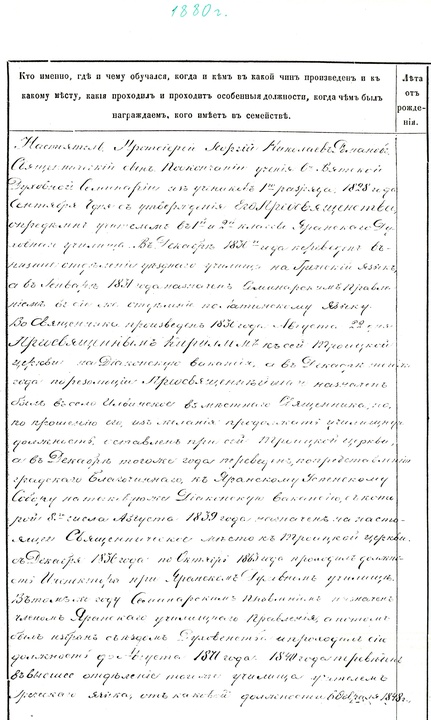 1880 г.
Кто именно, гдѣ и чему обучался, когда и кѣмъ въ какой чинъ произведенъ и къ
какому мѣсту, какія проходилъ и проходитъ особенныя должности, когда чѣмъ былъ
награждаемъ, кого имѣетъ въ семействѣ.
Лѣта
отъ
рожде-
нія.
Настоятель Протоіерей Георгій Николаевъ
Священническій сынъ. По окончаніи ученія въ Вятской
Духовной Семинаріи въ 1мъ разрядѣ, 1828 года
Сентября съ утвержденія Его Преосвященства,
опредѣленъ учителемъ въ 1й и 2й классы Яранскаго Ду-
ховнаго училища. Въ Декабрѣ 1830го года переведенъ въ
отдѣленіе уѣзднаго училища на Греческій языкъ,
а въ Январѣ 1831 года назначенъ Семинарскимъ Правле-
ніемъ въ отдѣленіе по латинскому языку.
Во Священника произведенъ 1836 года Августа 22 дня
Преосвященнымъ Кирилломъ къ сей Троицкой
церкви на Діаконскую вакансію, а въ Декабрѣ
года по резолюціи Преосвященнѣйшаго назначенъ
былъ въ село въ мѣстнаго Священника, но,
по прошенію его, изъ желанія продолжать училищную
должность, оставленъ при сей Троицкой церкви,
а въ Декабрѣ того же года переведенъ, по представленію
градскаго Благочиннаго, къ Яранскому Успенскому
Собору на таковую же Діаконскую вакансію, съ кото-
рой 8го числа Августа 1839 года назначенъ на насто-
ящее Священническое мѣсто къ Троицкой церкви.
съ Декабря 1836 года по Октябрь 1863 года проходилъ должно-
сть Инспектора при Яранскомъ Духовномъ училищѣ.
Въ томъ же году Семинарскимъ Правленіемъ назначенъ
членомъ Яранскаго училищнаго Правленія, а потомъ
былъ избранъ съѣздомъ Духовенства и проходилъ сію
должность до Августа 1871 года. 1840 года переведенъ
въ высшее отдѣленіе того же училища учителемъ
Греческаго языка, отъ каковой должности 1848 г.